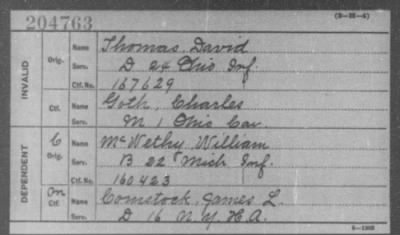 204763
(3-25-4)
INVALID
Orig. Name Thomas, David
Serv. D 24 Ohio Inf.
Ctf. No. 167629
Ctf. Name Goth, Charles
Serv. M 1 Ohio Cav.
DEPENDENT
C Orig. Name McWethy, William
Serv. B 22 Mich Inf.
Ctf. No. 160423
On Ctf. Name Comstock, James L.
Serv. D 16 N.Y. H.A.